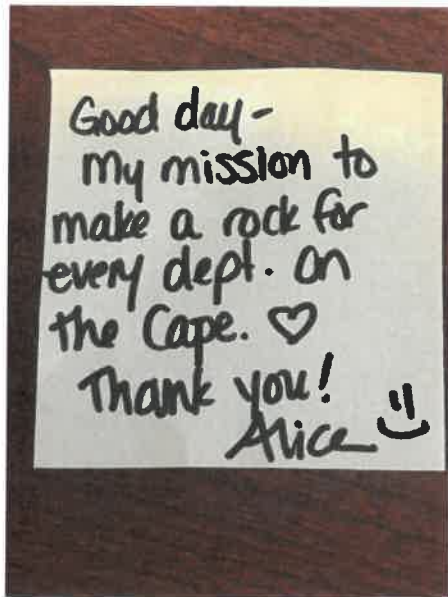 Good day-
My mission to
make a rock for
every dept. on
the Cape. ♡
Thank you!
Alice